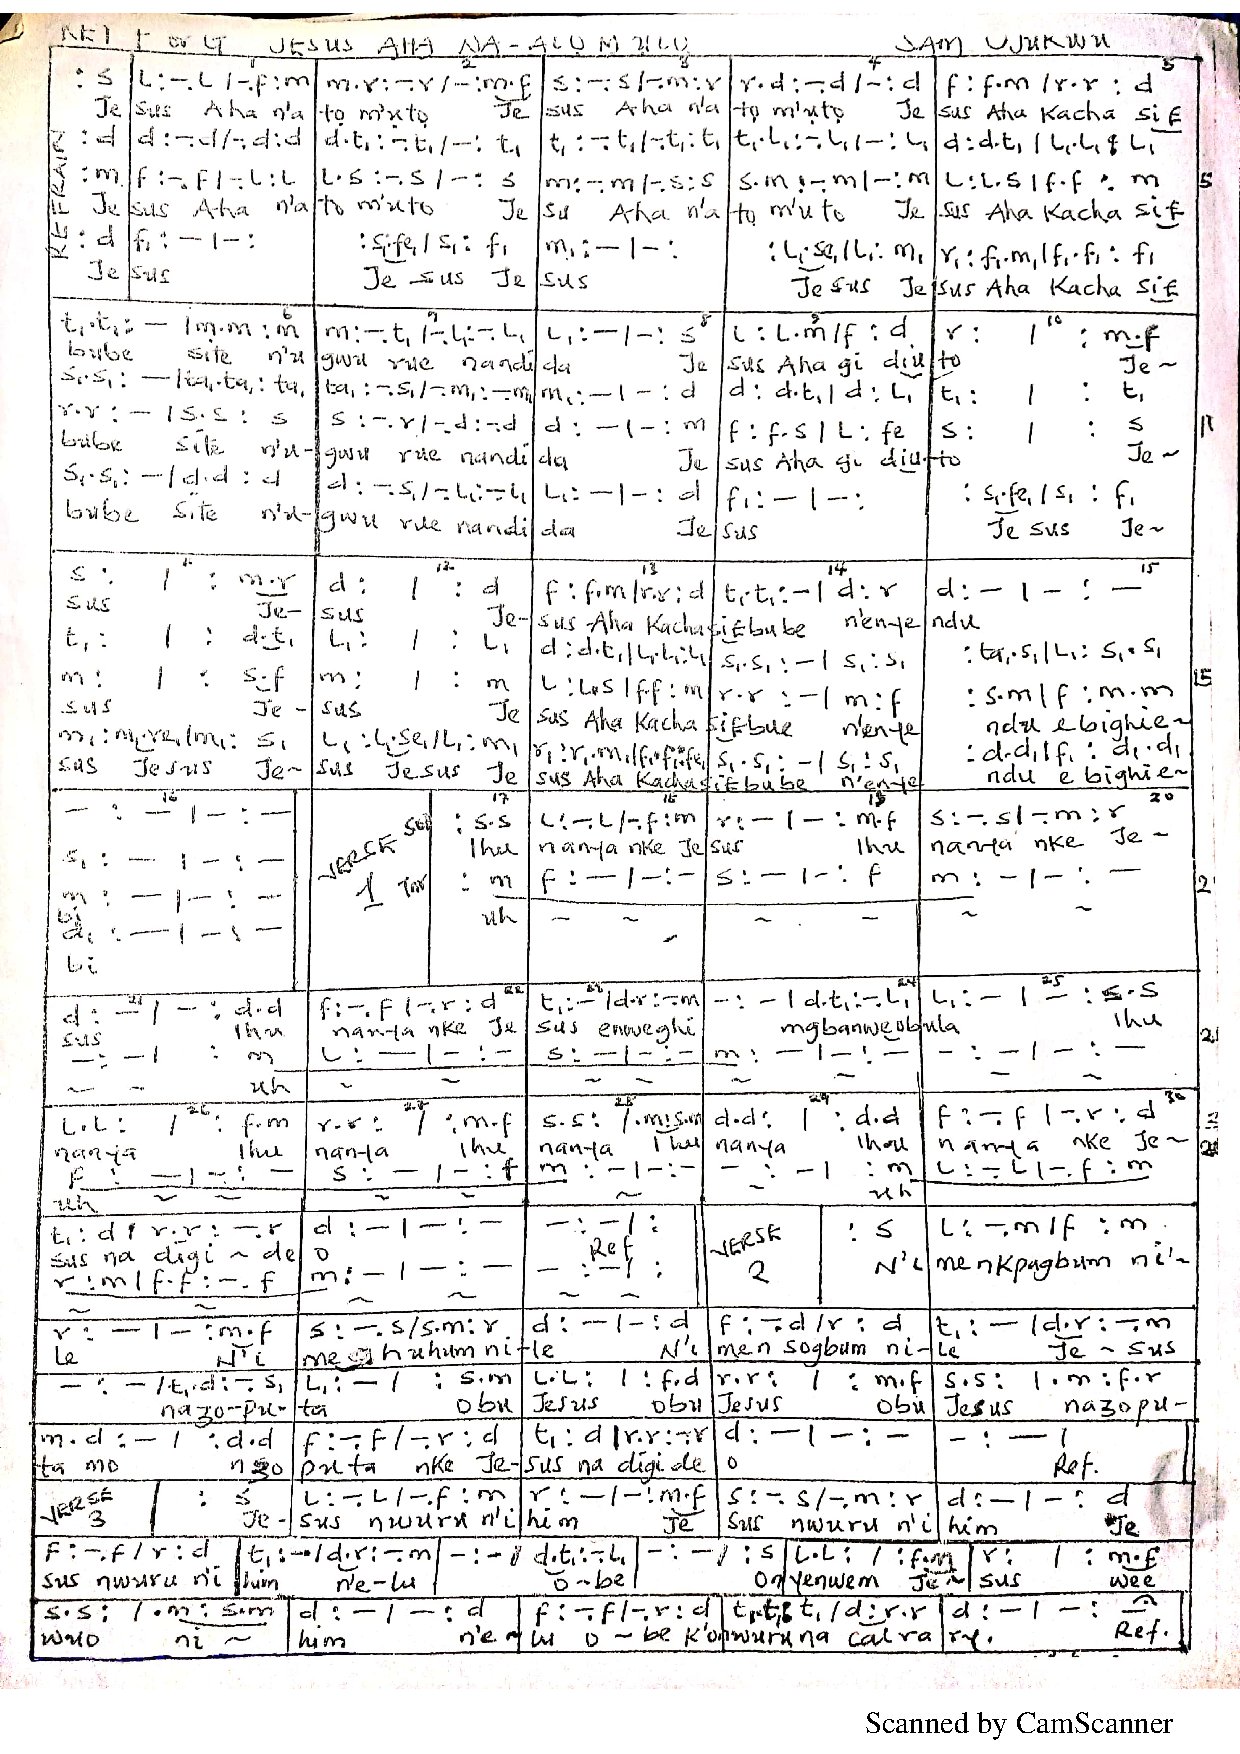 KEY F or G JESUS AHA NA-ATU M UTO SAM UJUKWU
REFRAIN
: s | L :-. L /-. f : m | m.r :-. r /-: m.f | s :-. s /-. m : r | r.d :-. d /-: d | f : f.m / r.r : d
Je sus Aha n'a tọ m'ụtọ Je sus Aha n'a tọ m'ụtọ Je sus Aha Kacha sie
: d | d :-. d /-. d : d | d.t₁ :-. t₁ /-: t₁ | t₁ :-. t₁ /-. t₁ : t₁ | t₁.L₁ :-. L₁ /-: L₁ | d : d.t₁ / L₁.L₁ : L₁
: m | f :-. f /-. L : L | L.s :-. s /-: s | m :-. m /-. s : s | s.m :-. m /-: m | L : L.s / f.f : m
Je sus Aha n'a to m'uto Je su Aha n'a tọ m'uto Je sus Aha Kacha sie
: d | f₁ : - | - : | : s₁.fe₁ / s₁ : f₁ | m₁ : - | - : | : L₁.se₁ / L₁ : m₁ | r₁ : f₁.m₁ / f₁.f₁ : f₁
Je sus Je sus Je sus Je sus Je sus Aha Kacha sie
t₁.t₁ : - / m.m : m | m :-. t₁ /-. L₁ :-. L₁ | L₁ : - | - : s | L : L.m / f : d | r : | : m.f
bube site n'u gwu rue nandi da Je sus Aha gi diu to Je~
s₁.s₁ : - / ta₁.ta₁ : ta₁ | ta₁ :-. s₁ /-. m₁ :-. m₁ | m₁ : - | - : d | d : d.t₁ | d : L₁ | t₁ : | : t₁
r.r : - / s.s : s | s :-. r /-. d :-. d | d : - | - : m | f : f.s | L : fe | s : | : s
bube site n'u- gwu rue nandi da Je sus Aha gi diu to Je~
s₁.s₁ : - / d.d : d | d :-. s₁ /-. L₁ :-. L₁ | L₁ : - | - : d | f₁ : - | - : | : s₁.fe₁ / s₁ : f₁
bube site n'u- gwu rue nandi da Je sus Je sus Je~
s : | : m.r | d : | : d | f : f.m / r.r : d | t₁.t₁ : - | d : r | d : - | - : -
sus Je- sus Je- sus Aha Kacha siebube n'enye ndu
t₁ : | : d.t₁ | L₁ : | : L₁ | d : d.t₁ | L₁.L₁ : L₁ | s₁.s₁ : - | s₁ : s₁ | : ta₁.s₁ | L₁ : s₁.s₁
m : | : s.f | m : | : m | L : L.s | f.f : m | r.r : - | m : f | : s.m | f : m.m
sus Je- sus Je sus Aha Kacha siebue n'enye ndu ebighie~
m₁ : m₁.re₁ / m₁ : s₁ | L₁ : L₁.se₁ / L₁ : m₁ | r₁ : r₁.m₁ / f₁.f₁ : fe₁ | s₁.s₁ : - | s₁ : s₁ | : d.d₁ | f₁ : d₁.d₁
sus Jesus Je~ sus Jesus Je sus Aha Kacha siebube n'enye ndu e bighie~
- : - | - : - | VERSE 1 Sol : s.s | L :-. L /-. f : m | r : - | - : m.f | s :-. s /-. m : r
Ihu nanya nke Je sus Ihu nanya nke Je~
s₁ : - | - : - | Tnr : m | f : - | - : - | s : - | - : f | m : - | - : -
m : - | - : - | uh ~ ~ ~ ~ ~ ~
bi
d₁ : - | - : -
bi
d : - | - : d.d | f :-. f /-. r : d | t₁ : - / d.r :-. m | - : - | d.t₁ :-. L₁ | L₁ : - | - : s.s
sus Ihu nanya nke Je sus enweghi mgbanweobula Ihu
- : - | : m | L : - | - : - | s : - | - : - | m : - | - : - | - : - | - : -
~ ~ uh ~ ~ ~ ~ ~ ~ ~
L.L : / : f.m | r.r : / : m.f | s.s : / .m : s.m | d.d : | : d.d | f :-. f | -. r : d
nanya Ihu nanya Ihu nanya Ihu nanya Ihu nanya nke Je~
f : - | - : - | s : - | - : f | m : - | - : - | - : - | : m | L :-. L | -. f : m
uh ~ ~ ~ ~ ~ uh
t₁ : d / r.r :-. r | d : - | - : - | - : - | : | VERSE 2 : s | L :-. m / f : m
sus na digi ~ de o Ref N'i menkpagbum ni'~
r : m | f.f :-. f | m : - | - : - | - : - | - :
~ ~ ~ ~ ~ ~
r : - | - : m.f | s :-. s / s.m : r | d : - | - : d | f :-. d / r : d | t₁ : - / d.r :-. m
le N'i huhum ni-le N'i men sogbum ni-le Je~sus
- : - / t₁.d :-. s₁ | L₁ : - | : s.m | L.L : | : f.d | r.r : | : m.f | s.s : | .m : f.r
nazo-pu-ta obu Jesus obu Jesus obu Jesus nazopu-
m.d : - | : d.d | f :-. f /-. r : d | t₁ : d | r.r :-. r | d : - | - : - | - : - |
ta mo nazo puta nke Je-sus na digide o Ref.
VERSE 3 | : s | L :-. L /-. f : m | r : - | - : m.f | s :-. s /-. m : r | d : - | - : d
Je- sus nwuru n'i him Je sus nwuru n'i him Je
f :-. f / r : d | t₁ : - / d.r :-. m | - : - / d.t₁ :-. L₁ | - : - / : s | L.L : / : f.m | r : / : m.f
sus nwuru n'i him n'e-lu o-be Onyenwem Je~ sus wee
s.s : / .m : s.m | d : - | - : d | f :-. f /-. r : d | t₁.t₁ : t₁ / d : r.r | d : - | - : -
wuo ni ~ him n'e~ lu o~be K'onwuru na calvary. Ref.
Scanned by CamScanner